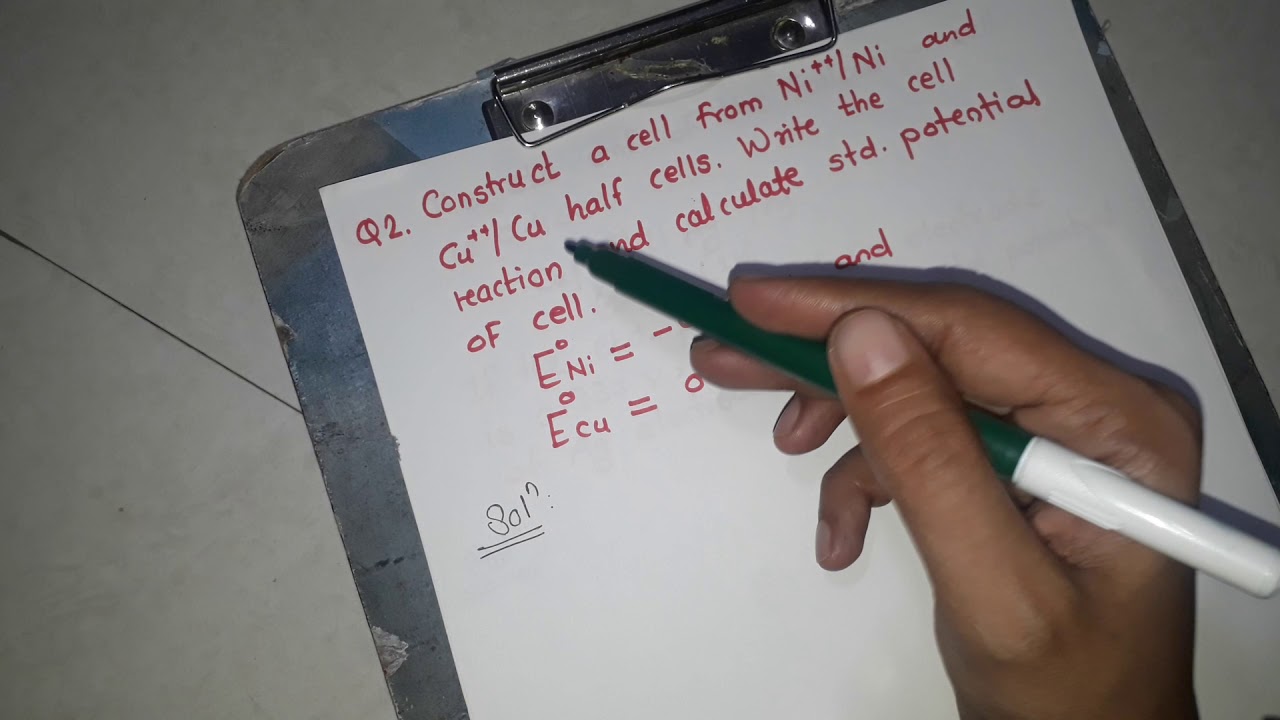 Q2. Construct a cell from Ni⁺⁺/Ni and
Cu⁺⁺/Cu half cells. Write the cell
reaction and calculate std. potential
of cell.
E°Ni = - and
E°Cu = 0
Solⁿ: